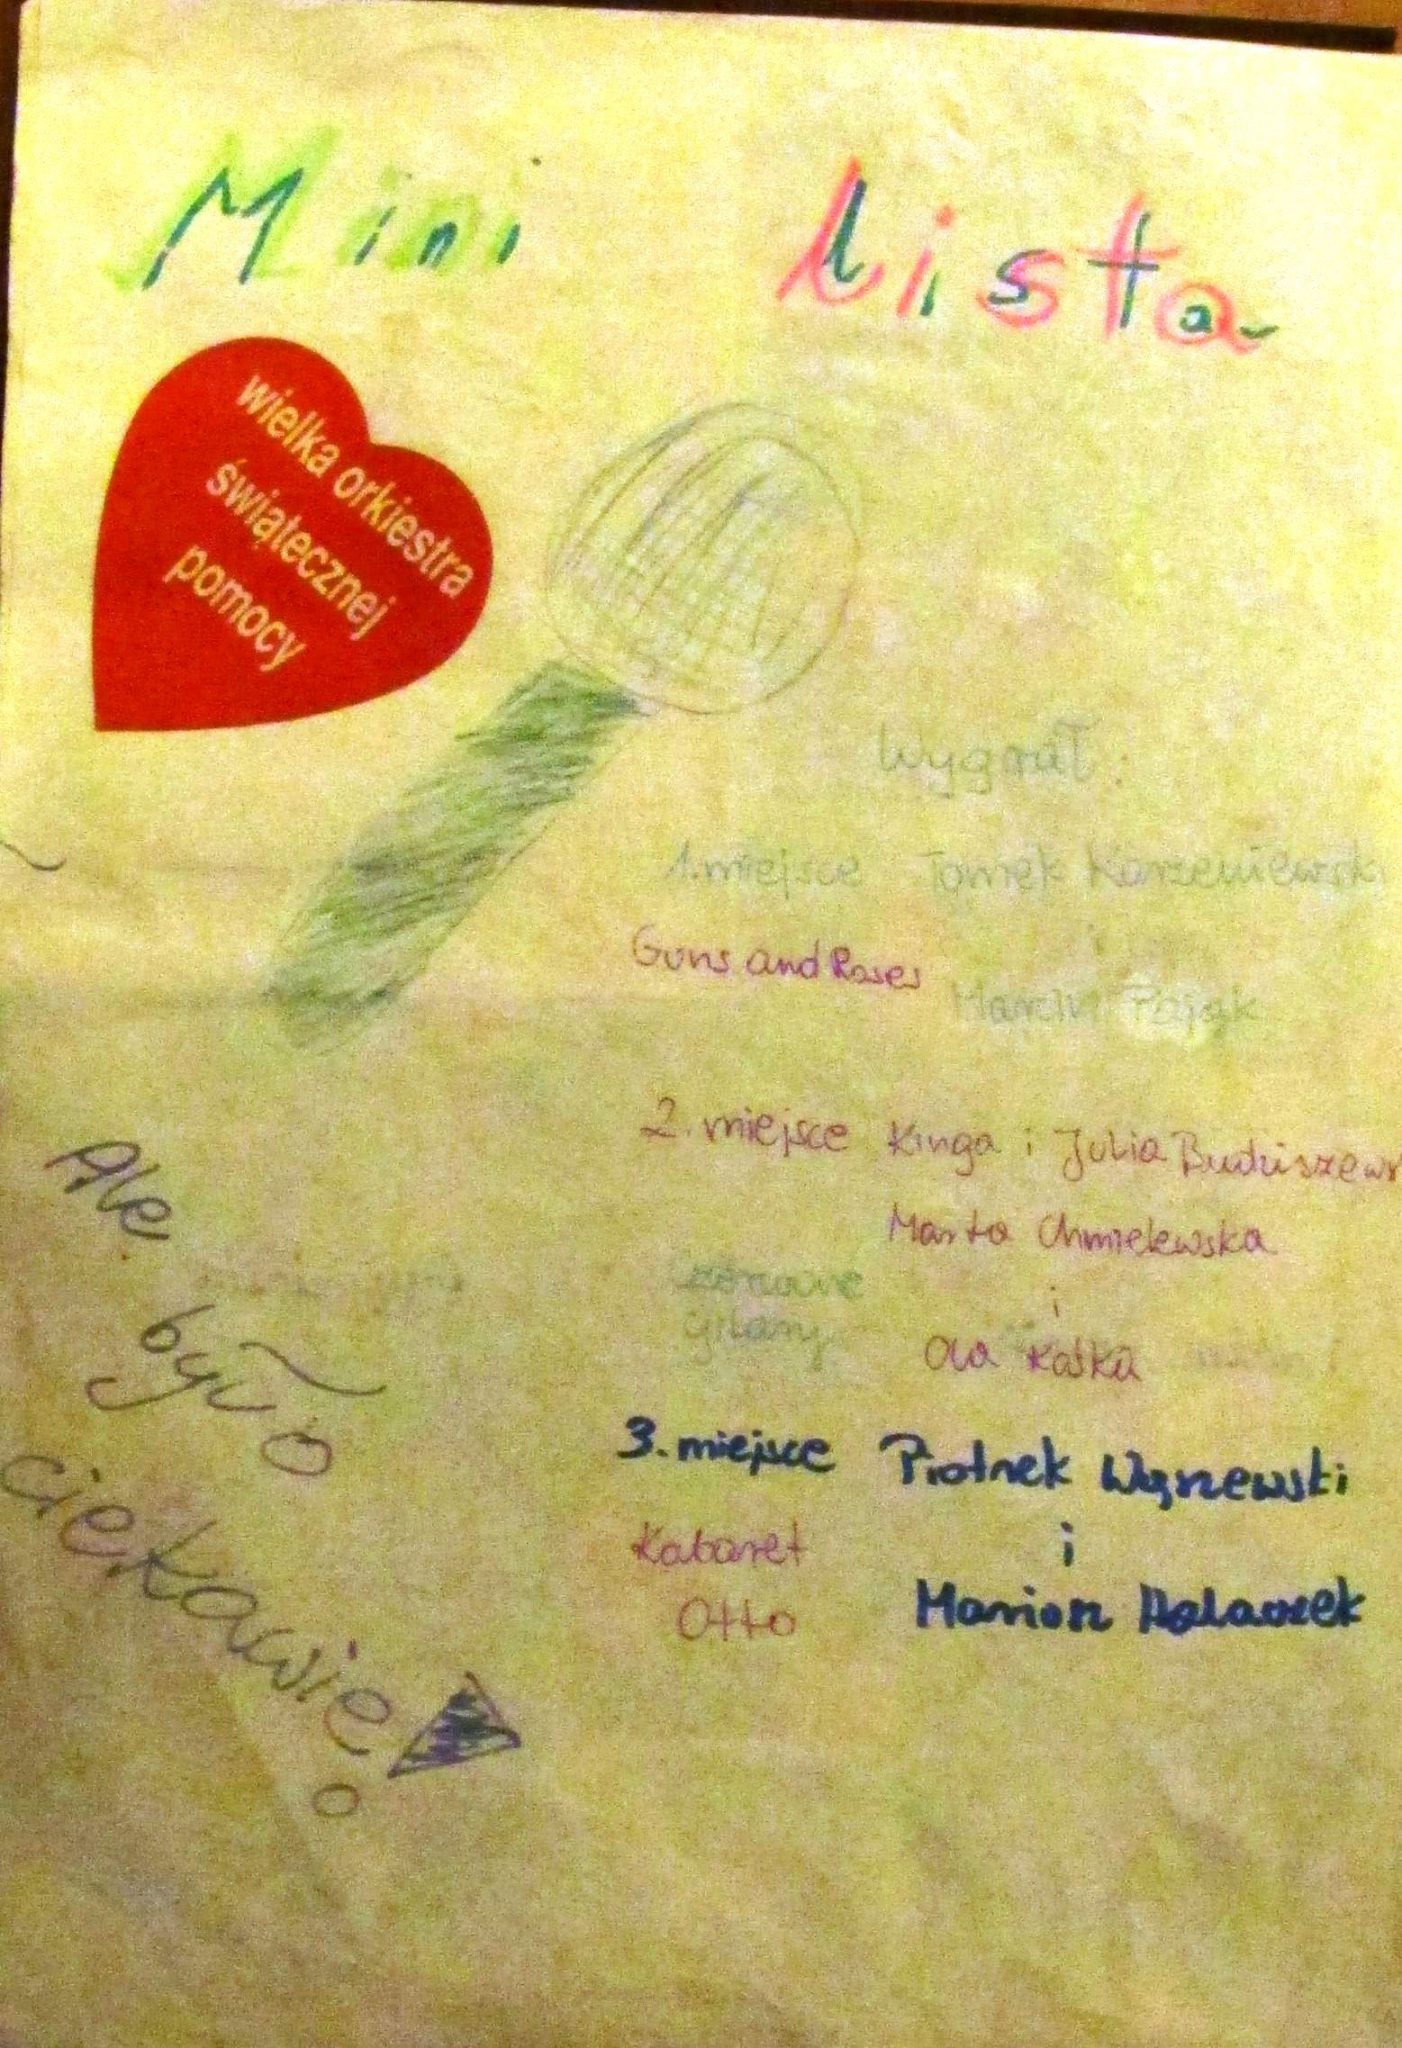 Mini Lista
wielka orkiestra
świątecznej
pomocy
Wygrał:
1. miejsce Tomek Korzeniewski
i
Guns and Roses Marcin Pająk
2. miejsce Kinga i Julia
Marta Chmielewska
i
gitary Ola Kaśka
3. miejsce Piotrek
Kabaret i
Otto Mariosz
Ale
było
ciekawie!